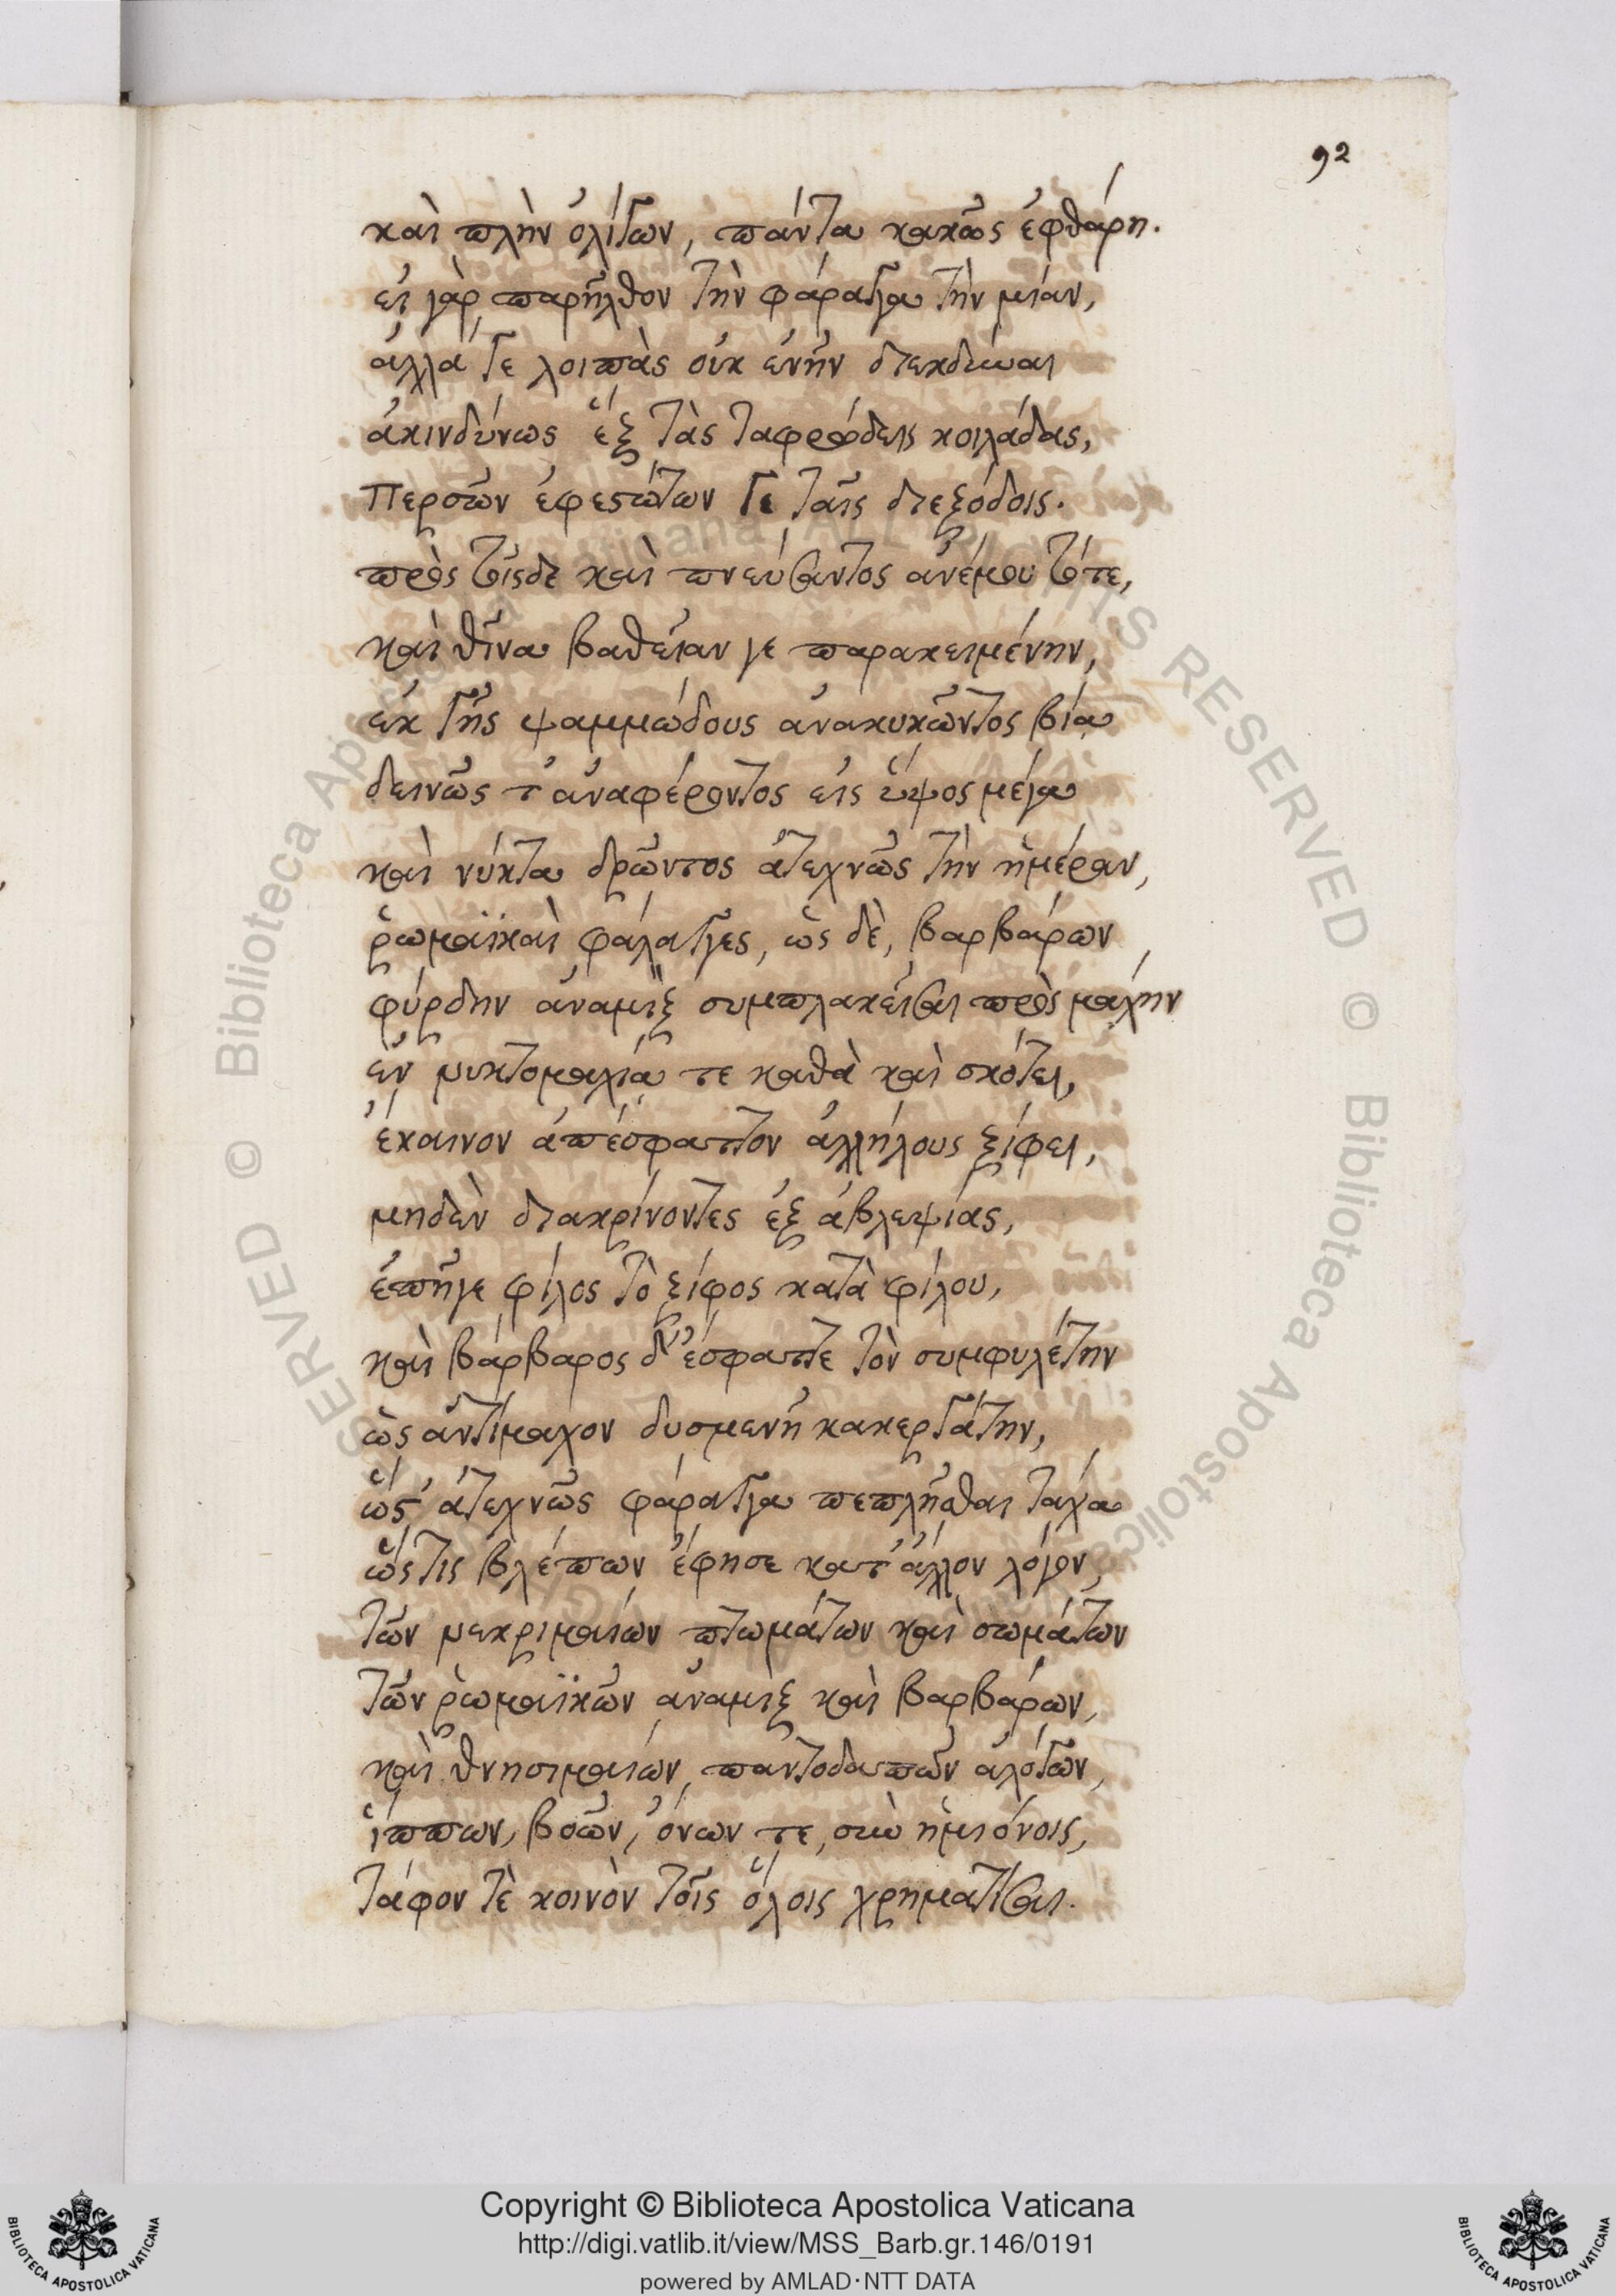 92
καὶ πλὴν ὀλίγων, πάντα κακῶς ἐφθάρη.
εἰ γὰρ παρῆλθον τὴν φάραγγα τὴν μίαν,
ἀλλά γε λοιπὰς οὐκ ἐνῆν διεκδῦναι
ἀκινδύνως ἓξ τὰς ταφρώδεις κοιλάδας,
Περσῶν ἐφεστώτων γε ταῖς διεξόδοις.
πρὸς τοῖσδε καὶ πνεύσαντος ἀνέμου τότε,
καὶ θῖνα βαθεῖαν γε παρακειμένην,
ἐκ γῆς ψαμμώδους ἀνακυκῶντος βίᾳ
δεινῶς τ' ἀναφέροντος εἰς ὕψος μέγα
καὶ νύκτα δρῶντος ἀτεχνῶς τὴν ἡμέραν,
ῥωμαϊκαὶ φάλαγγες, ὡς δὲ, βαρβάρων
φύρδην ἀναμὶξ συμπλακεῖσαι πρὸς μάχην
ἐν νυκτομαχίᾳ τε καθὰ καὶ σκότει,
ἔκαινον ἀπέσφαττον ἀλλήλους ξίφει,
μηδὲν διακρίνοντες ἐξ ἀβλεψίας,
ἐπῆγε φίλος τὸ ξίφος κατὰ φίλου,
καὶ βάρβαρος δ' ἔσφαττε τὸν συμφυλέτην
ὡς ἀντίμαχον δυσμενῆ κακεργάτην,
ὥς ἀτεχνῶς φάραγγα πεπλῆσθαι τάχα
ὥς τις βλέπων ἔφησε κατ' ἄλλον λόγον,
τῶν νεκριμαίων πτωμάτων καὶ σωμάτων
τῶν ῥωμαϊκῶν ἀναμὶξ καὶ βαρβάρων,
καὶ θνησιμαίων παντοδαπῶν ἀλόγων,
ἵππων, βοῶν, ὄνων τε, σὺν ἡμιόνοις,
τάφον τὲ κοινὸν τοῖς ὅλοις χρηματίσαι.
Copyright © Biblioteca Apostolica Vaticana
http://digi.vatlib.it/view/MSS_Barb.gr.146/0191
powered by AMLAD·NTT DATA